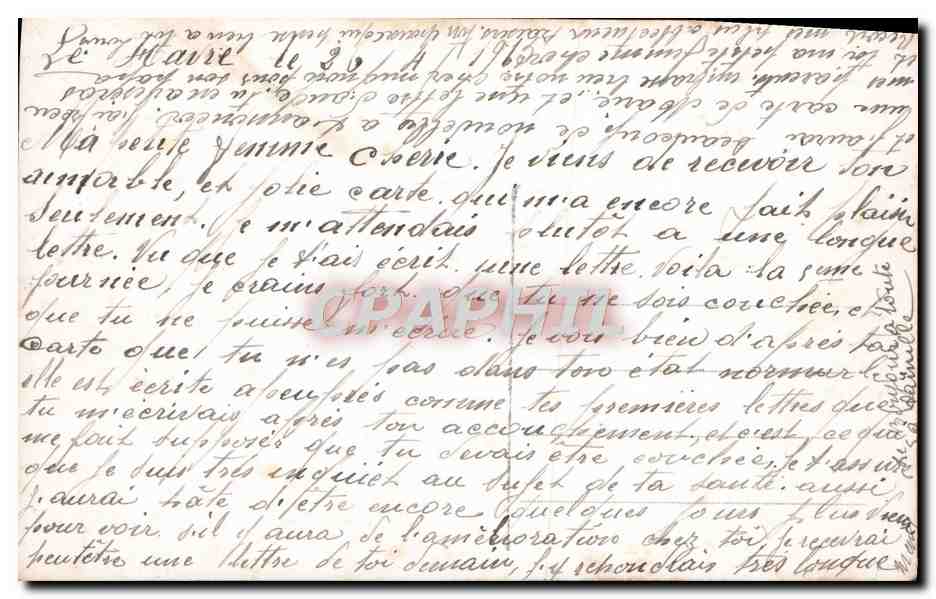 Le Havre le 26
Ma petite femme cherie. Je viens de recevoir ton
aimable, et jolie carte qui m'a encore fait plaisir
seulement je m'attendais plutôt a une longue
lettre. Vu que je t'ais écrit une lettre. Voila la 5eme
journée, je crains fort que tu ne sois couchée, et
que tu ne puisse m'ecrire. Je vois bien d'aprés ta
carte que tu n'es pas dans ton état normal
elle est écrite apeuprés comme tes premieres lettres que
tu m'écrivais aprés ton accouchement, et c'est ce qui
me fait supposer que tu devais être couchée, je t'assure
que je suis trés inquiet au sujet de ta santé. aussi
j'aurai hâte d'être encore quelques jours plus vieux
pour voir s'il y aura de l'amélioration chez toi, je recevrai
peutêtre une lettre de toi demain, j'y rehondlais trés longue
et tu auras beaucoup de nouvelles a m'annoncer
une carte de Marie, et une lettre d'aude, tu embrasseras
mes parents notre cher mignon sans son papa
et toi ma petite femme cherie
CPAPHIL